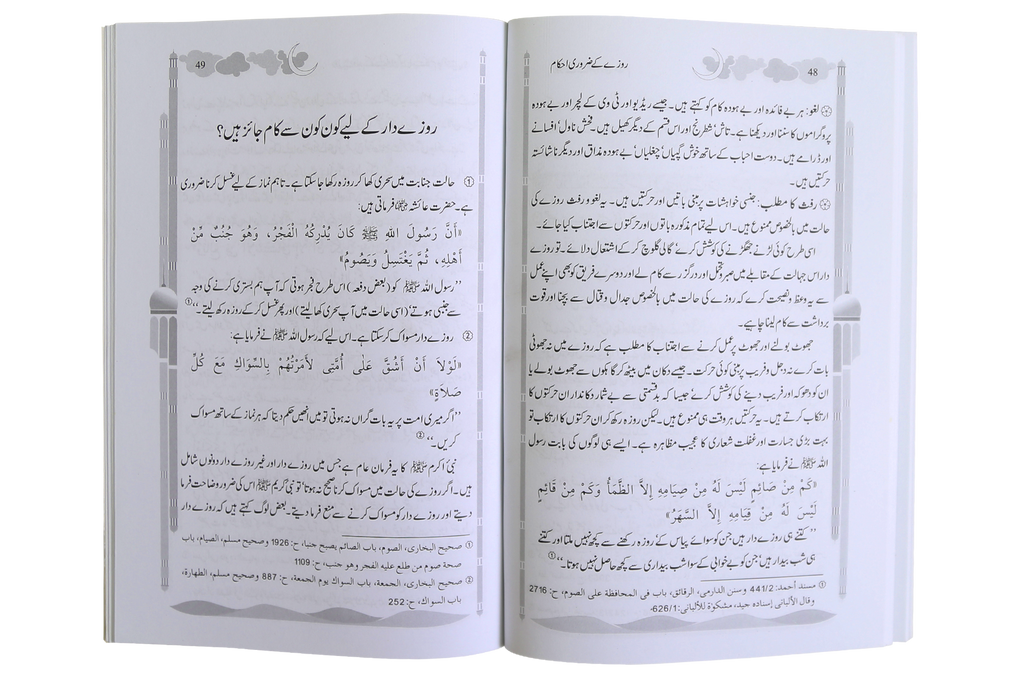 48
روزے کے ضروری احکام
لغو: ہر بے فائدہ اور بے ہودہ کام کو کہتے ہیں۔ جیسے ریڈیو اور ٹی وی کے لچر اور بے ہودہ
پروگراموں کا سننا اور دیکھنا ہے۔ تاش، شطرنج اور اس قسم کے دیگر کھیل ہیں۔ فحش ناول، افسانے
اور ڈرامے ہیں۔ دوست احباب کے ساتھ خوش گپیاں، چغلیاں، بے ہودہ مذاق اور دیگر ناشائستہ
حرکتیں ہیں۔
رفث کا مطلب: جنسی خواہشات پر مبنی باتیں اور حرکتیں ہیں۔ یہ لغو و رفث روزے کی
حالت میں بالخصوص ممنوع ہیں۔ اس لیے تمام مذکورہ باتوں اور حرکتوں سے اجتناب کیا جائے۔
اسی طرح کوئی لڑنے جھگڑنے کی کوشش کرے، گالی گلوچ کر کے اشتعال دلائے۔ تو روزے
دار اس جہالت کے مقابلے میں صبر و تحمل اور درگزر سے کام لے اور دوسرے فریق کو بھی اپنے عمل
سے یہ وعظ و نصیحت کرے کہ روزے کی حالت میں بالخصوص جدال و قتال سے بچنا اور قوت
برداشت سے کام لینا چاہیے۔
جھوٹ بولنے اور جھوٹ پر عمل کرنے سے اجتناب کا مطلب ہے کہ روزے میں نہ جھوٹی
بات کرے نہ دجل و فریب پر مبنی کوئی حرکت۔ جیسے دکان میں بیٹھ کر گاہکوں سے جھوٹ بولے یا
ان کو دھوکہ اور فریب دینے کی کوشش کرے، جیسا کہ بدقسمتی سے بے شمار دکاندار ان حرکتوں کا
ارتکاب کرتے ہیں۔ یہ حرکتیں ہر وقت ہی ممنوع ہیں۔ لیکن روزہ رکھ کر ان حرکتوں کا ارتکاب تو
بہت بڑی جسارت اور غفلت شعاری کا عجیب مظاہرہ ہے۔ ایسے ہی لوگوں کی بابت رسول
اللہ ﷺ نے فرمایا ہے:
«كَمْ مِنْ صَائِمٍ لَيْسَ لَهُ مِنْ صِيَامِهِ إِلَّا الظَّمَأُ وَكَمْ مِنْ قَائِمٍ
لَيْسَ لَهُ مِنْ قِيَامِهِ إِلَّا السَّهَرُ»
”کتنے ہی روزے دار ہیں جن کو سوائے پیاس کے روزہ رکھنے سے کچھ نہیں ملتا اور کتنے
ہی شب بیدار ہیں، جن کو بے خوابی کے سوا شب بیداری سے کچھ حاصل نہیں ہوتا۔“①
① مسند أحمد: 441/2 وسنن الدارمی، الرقائق، باب فی المحافظة علی الصوم، ح: 2716
وقال الألبانی إسناده جید، مشکوٰة للألبانی: 626/1-
49
روزے دار کے لیے کون کون سے کام جائز ہیں؟
① حالت جنابت میں سحری کھا کر روزہ رکھا جا سکتا ہے۔ تاہم نماز کے لیے غسل کرنا ضروری
ہے۔ حضرت عائشہ فرماتی ہیں:
«أَنَّ رَسُولَ اللهِ ﷺ كَانَ يُدْرِكُهُ الْفَجْرُ، وَهُوَ جُنُبٌ مِّنْ
أَهْلِهِ، ثُمَّ يَغْتَسِلُ وَيَصُومُ»
”رسول اللہ ﷺ کو (بعض دفعہ) اس طرح فجر ہوتی کہ آپ ہم بستری کرنے کی وجہ
سے جنبی ہوتے، (اسی حالت میں آپ سحری کھا لیتے) اور پھر غسل کر کے روزہ رکھ لیتے۔“①
② روزے دار مسواک کر سکتا ہے۔ اس لیے کہ رسول اللہ ﷺ نے فرمایا ہے:
«لَوْلاَ أَنْ أَشُقَّ عَلَى أُمَّتِي لأَمَرْتُهُمْ بِالسِّوَاكِ مَعَ كُلِّ
صَلاَةٍ»
”اگر میری امت پر یہ بات گراں نہ ہوتی تو میں انھیں حکم دیتا کہ ہر نماز کے ساتھ مسواک
کریں۔“②
نبیٔ اکرم ﷺ کا یہ فرمان عام ہے جس میں روزے دار اور غیر روزے دار دونوں شامل
ہیں۔ اگر روزے کی حالت میں مسواک کرنا صحیح نہ ہوتا، تو نبیٔ کریم ﷺ اس کی ضرور وضاحت فرما
دیتے اور روزے دار کو مسواک کرنے سے منع فرما دیتے۔ بعض لوگ کہتے ہیں کہ روزے دار
① صحیح البخاری، الصوم، باب الصائم یصبح جنبا، ح: 1926 وصحیح مسلم، الصیام، باب
صحة صوم من طلع علیه الفجر وهو جنب، ح: 1109
② صحیح البخاری، الجمعة، باب السواك یوم الجمعة، ح: 887 وصحیح مسلم، الطهارة،
باب السواك، ح: 252